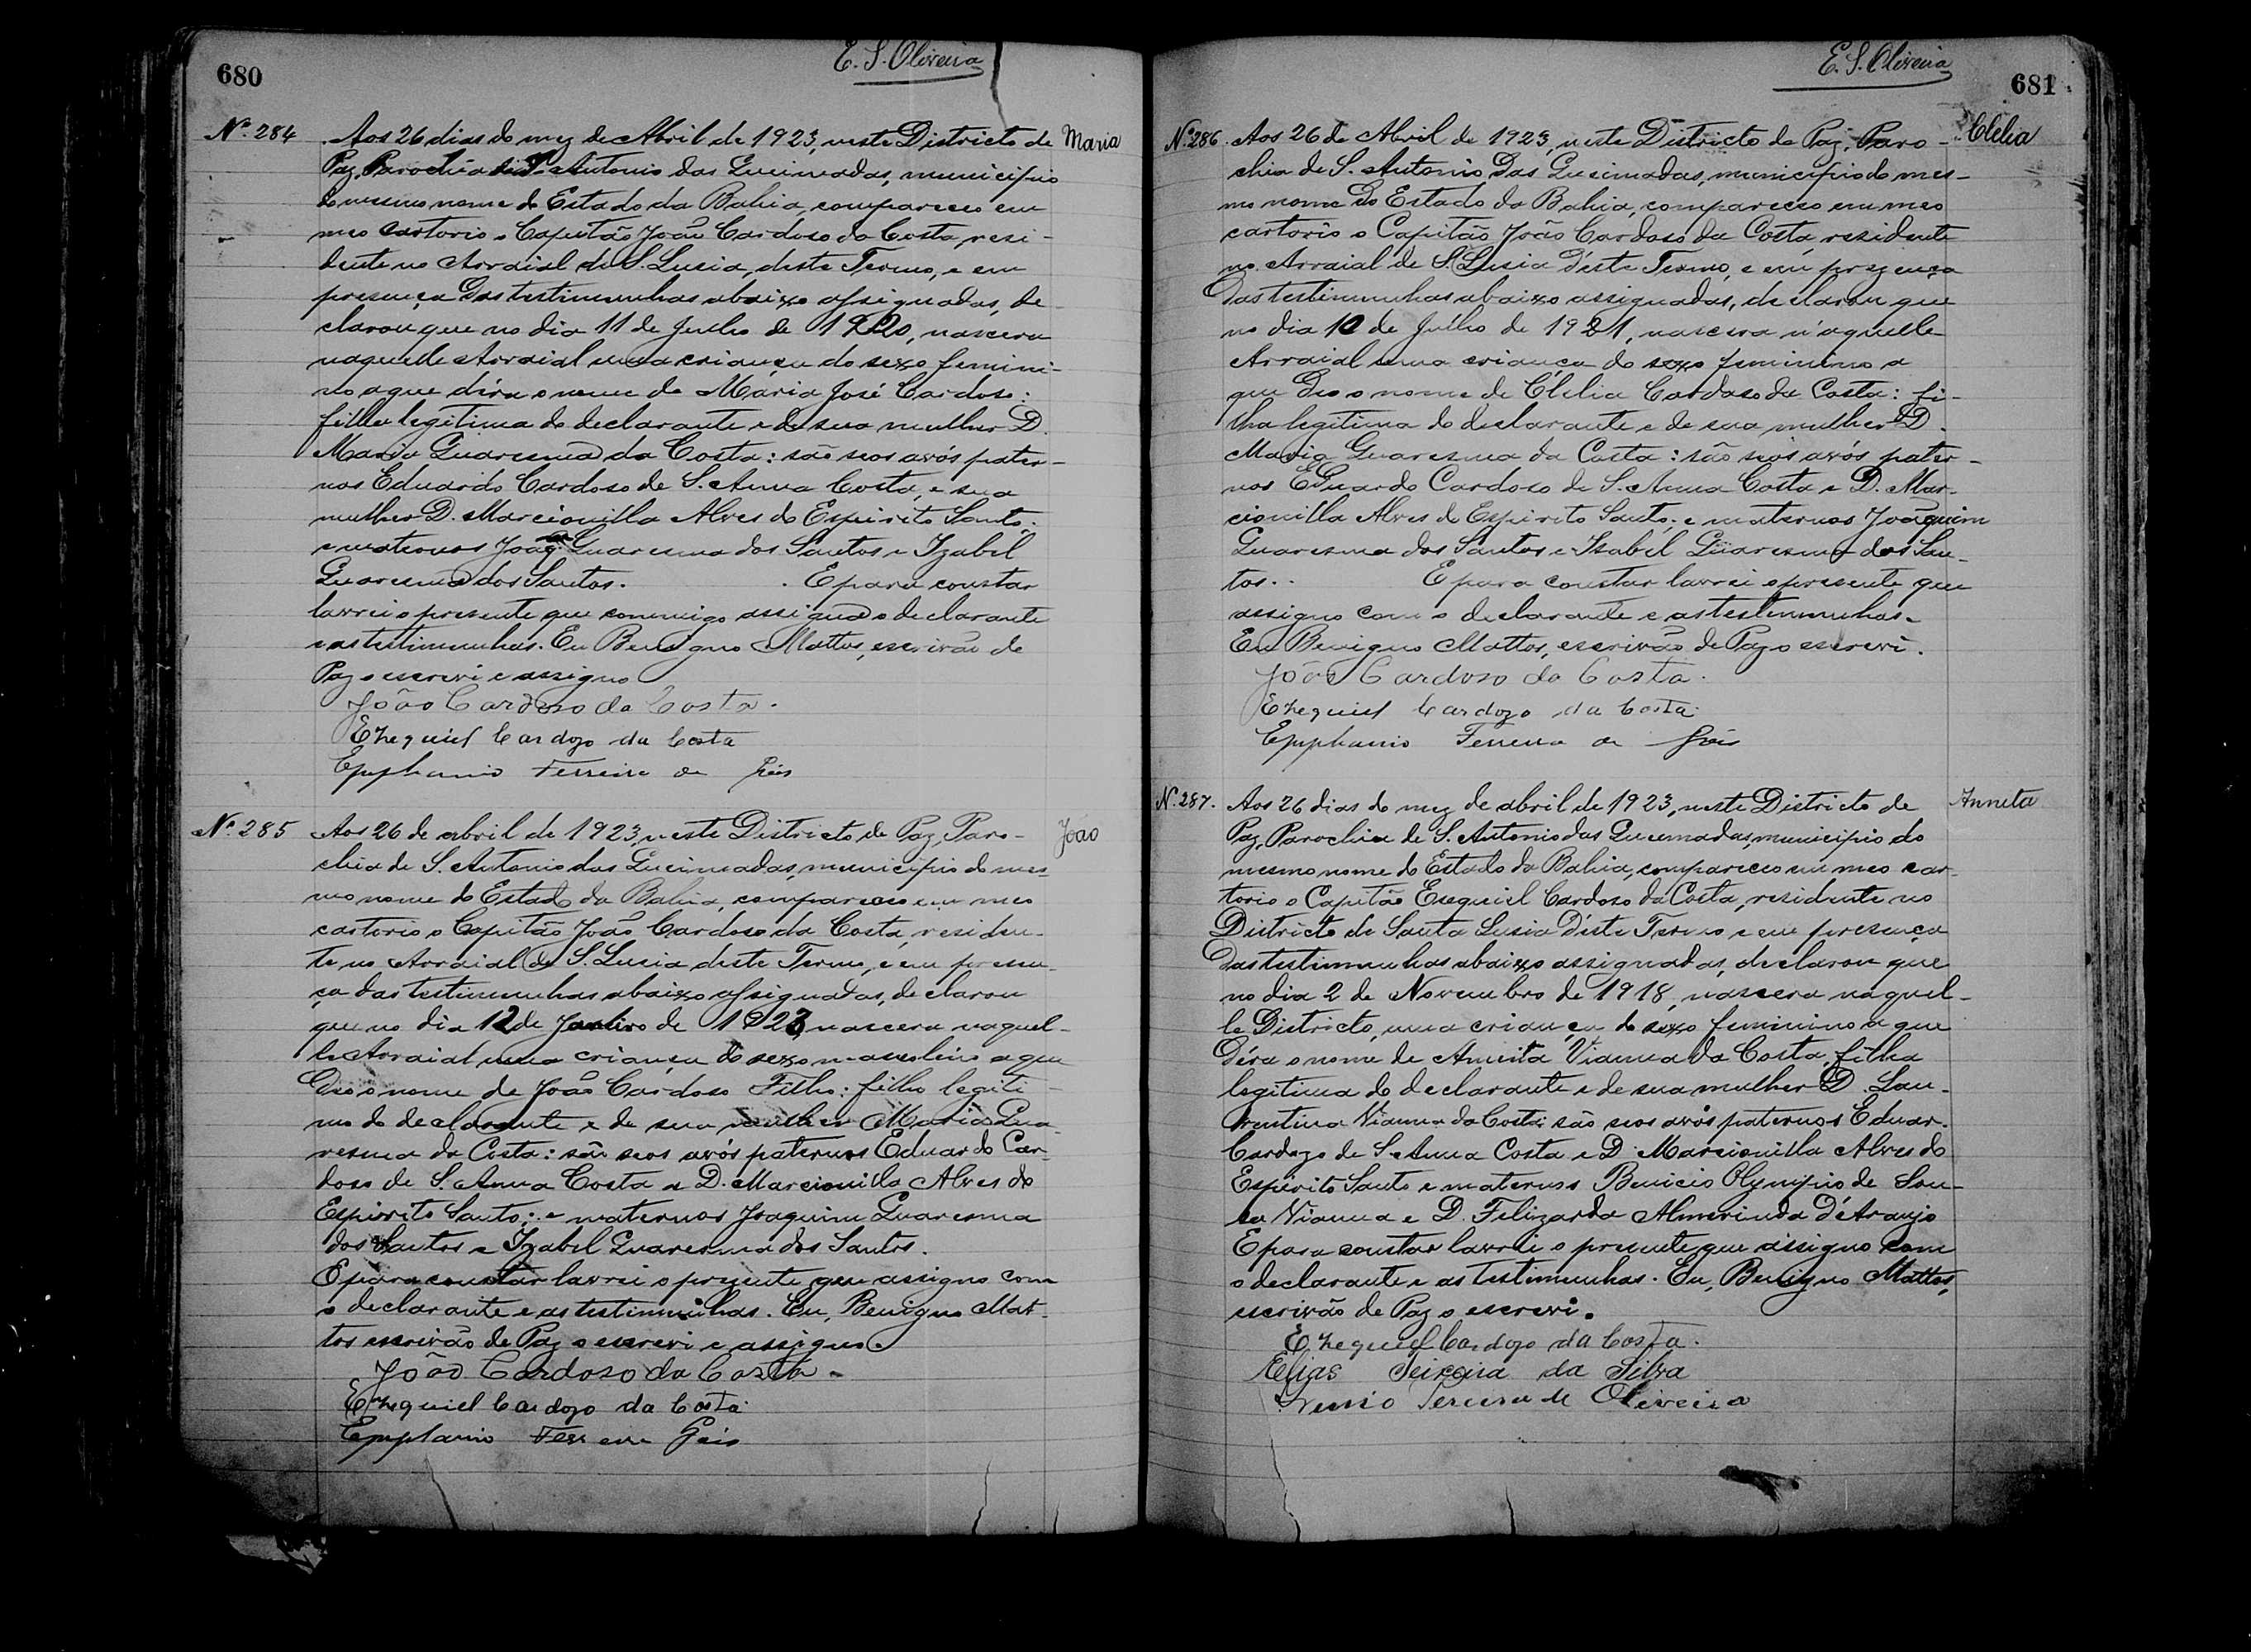 680
E. S. Oliveira
Nº 284
Aos 26 dias do mez de Abril de 1923, neste Districto de
Maria
Paz, Parochia de S. Antonio das Queimadas, municipio
do mesmo nome do Estado da Bahia, compareceo em
meo cartorio o Capitão João Cardoso da Costa, resi-
dente no Arraial de S. Lusia, deste Termo, e em
presença das testimunhas abaixo assignadas, de
clarou que no dia 11 de Julho de 1920, nascera
naquelle Arraial uma criança do sexo femini-
no a que déra o nome de Maria José Cardoso:
filha legitima do declarante e de sua mulher D.
Maria Quaresma da Costa: são seos avós pater-
nos Eduardo Cardoso de S. Anna Costa, e sua
mulher D. Marcionilla Alves do Espirito Santo;
e maternos Joaq.m Quaresma dos Santos e Izabel
Quaresma dos Santos. E para constar
lavrei o presente que commigo assigna o declarante
e as testimunhas. Eu Benigno Mattos, escrivão de
Paz o escrevi e assigno
João Cardoso da Costa.
Ezequiel Cardozo da Costa
Epyphanio Ferreira de Góis
Nº 285
Aos 26 de abril de 1923, neste Districto de Paz, Paro-
João
chia de S. Antonio das Queimadas, municipio do mes-
mo nome do Estado da Bahia, compareceo em meo
cartorio o Capitão João Cardoso da Costa, residen-
te no Arraial de S. Lusia deste Termo, e em presen-
ça das testimunhas abaixo assignadas, declarou
que no dia 12 de Janeiro de 1923, nascera naquel-
le Arraial uma criança do sexo masculino a que
deo o nome de João Cardoso Filho: filho legiti-
mo do declarante e de sua mulher Maria Qua-
resma da Costa: são seos avós paternos Eduardo Car-
doso de S. Anna Costa e D. Marcionilla Alves do
Espirito Santo; e maternos Joaquim Quaresma
dos Santos e Izabel Quaresma dos Santos.
E para constar lavrei o presente que assigno com
o declarante e as testimunhas. Eu, Benigno Mat-
tos escrivão de Paz o escrevi e assigno.
João Cardoso da Costa.
Ezequiel Cardozo da Costa
Epyphanio Ferreira Góis
E. S. Oliveira
681
Nº 286.
Aos 26 de Abril de 1923, neste Districto de Paz, Paro-
Clélia
chia de S. Antonio das Queimadas, municipio do mes-
mo nome do Estado da Bahia, compareceo em meo
cartorio o Capitão João Cardoso da Costa, residente
no Arraial de S. Lusia d'este Termo, e em prezença
das testimunhas abaixo assignadas, declarou que
no dia 10 de Julho de 1921, nascera n'aquelle
Arraial uma criança do sexo feminino a
que deo o nome de Clélia Cardoso da Costa: fi-
lha legitima do declarante e de sua mulher D.
Maria Quaresma da Costa: são seos avós pater-
nos Eduardo Cardoso de S. Anna Costa e D. Mar-
cionilla Alves do Espirito Santo; e maternos Joaquim
Quaresma dos Santos e Isabel Quaresma dos San-
tos. E para constar lavrei o presente que
assigno com o declarante e as testimunhas.
Eu Benigno Mattos, escrivão de Paz o escrevi.
João Cardoso da Costa.
Ezequiel Cardozo da Costa
Epyphanio Ferreira de Góis
Nº 287.
Aos 26 dias do mez de abril de 1923, neste Districto de
Anneta
Paz, Parochia de S. Antonio das Queimadas, municipio do
mesmo nome do Estado da Bahia, compareceo em meo car-
torio o Capitão Esequiel Cardoso da Costa, residente no
Districto de Santa Lusia d'este Termo e em presença
das testimunhas abaixo assignadas, declarou que
no dia 2 de Novembro de 1918, nascera naquel-
le Districto, uma criança do sexo feminino a que
déra o nome de Vianna da Costa, filha
legitima do declarante e de sua mulher D. Lau-
rentina Vianna da Costa: são seos avós paternos Eduar.
Cardozo de S. Anna Costa e D. Marcionilla Alves do
Espirito Santo e maternos Benicio Olympio de Sou-
za Vianna e D. Felizarda Almerinda d'Araujo
E para constar lavrei o presente que assigno com
o declarante e as testimunhas. Eu, Benigno Mattos,
escrivão de Paz o escrevi.
Ezequiel Cardozo da Costa.
Elias Teixeira da Silva
de Oliveira